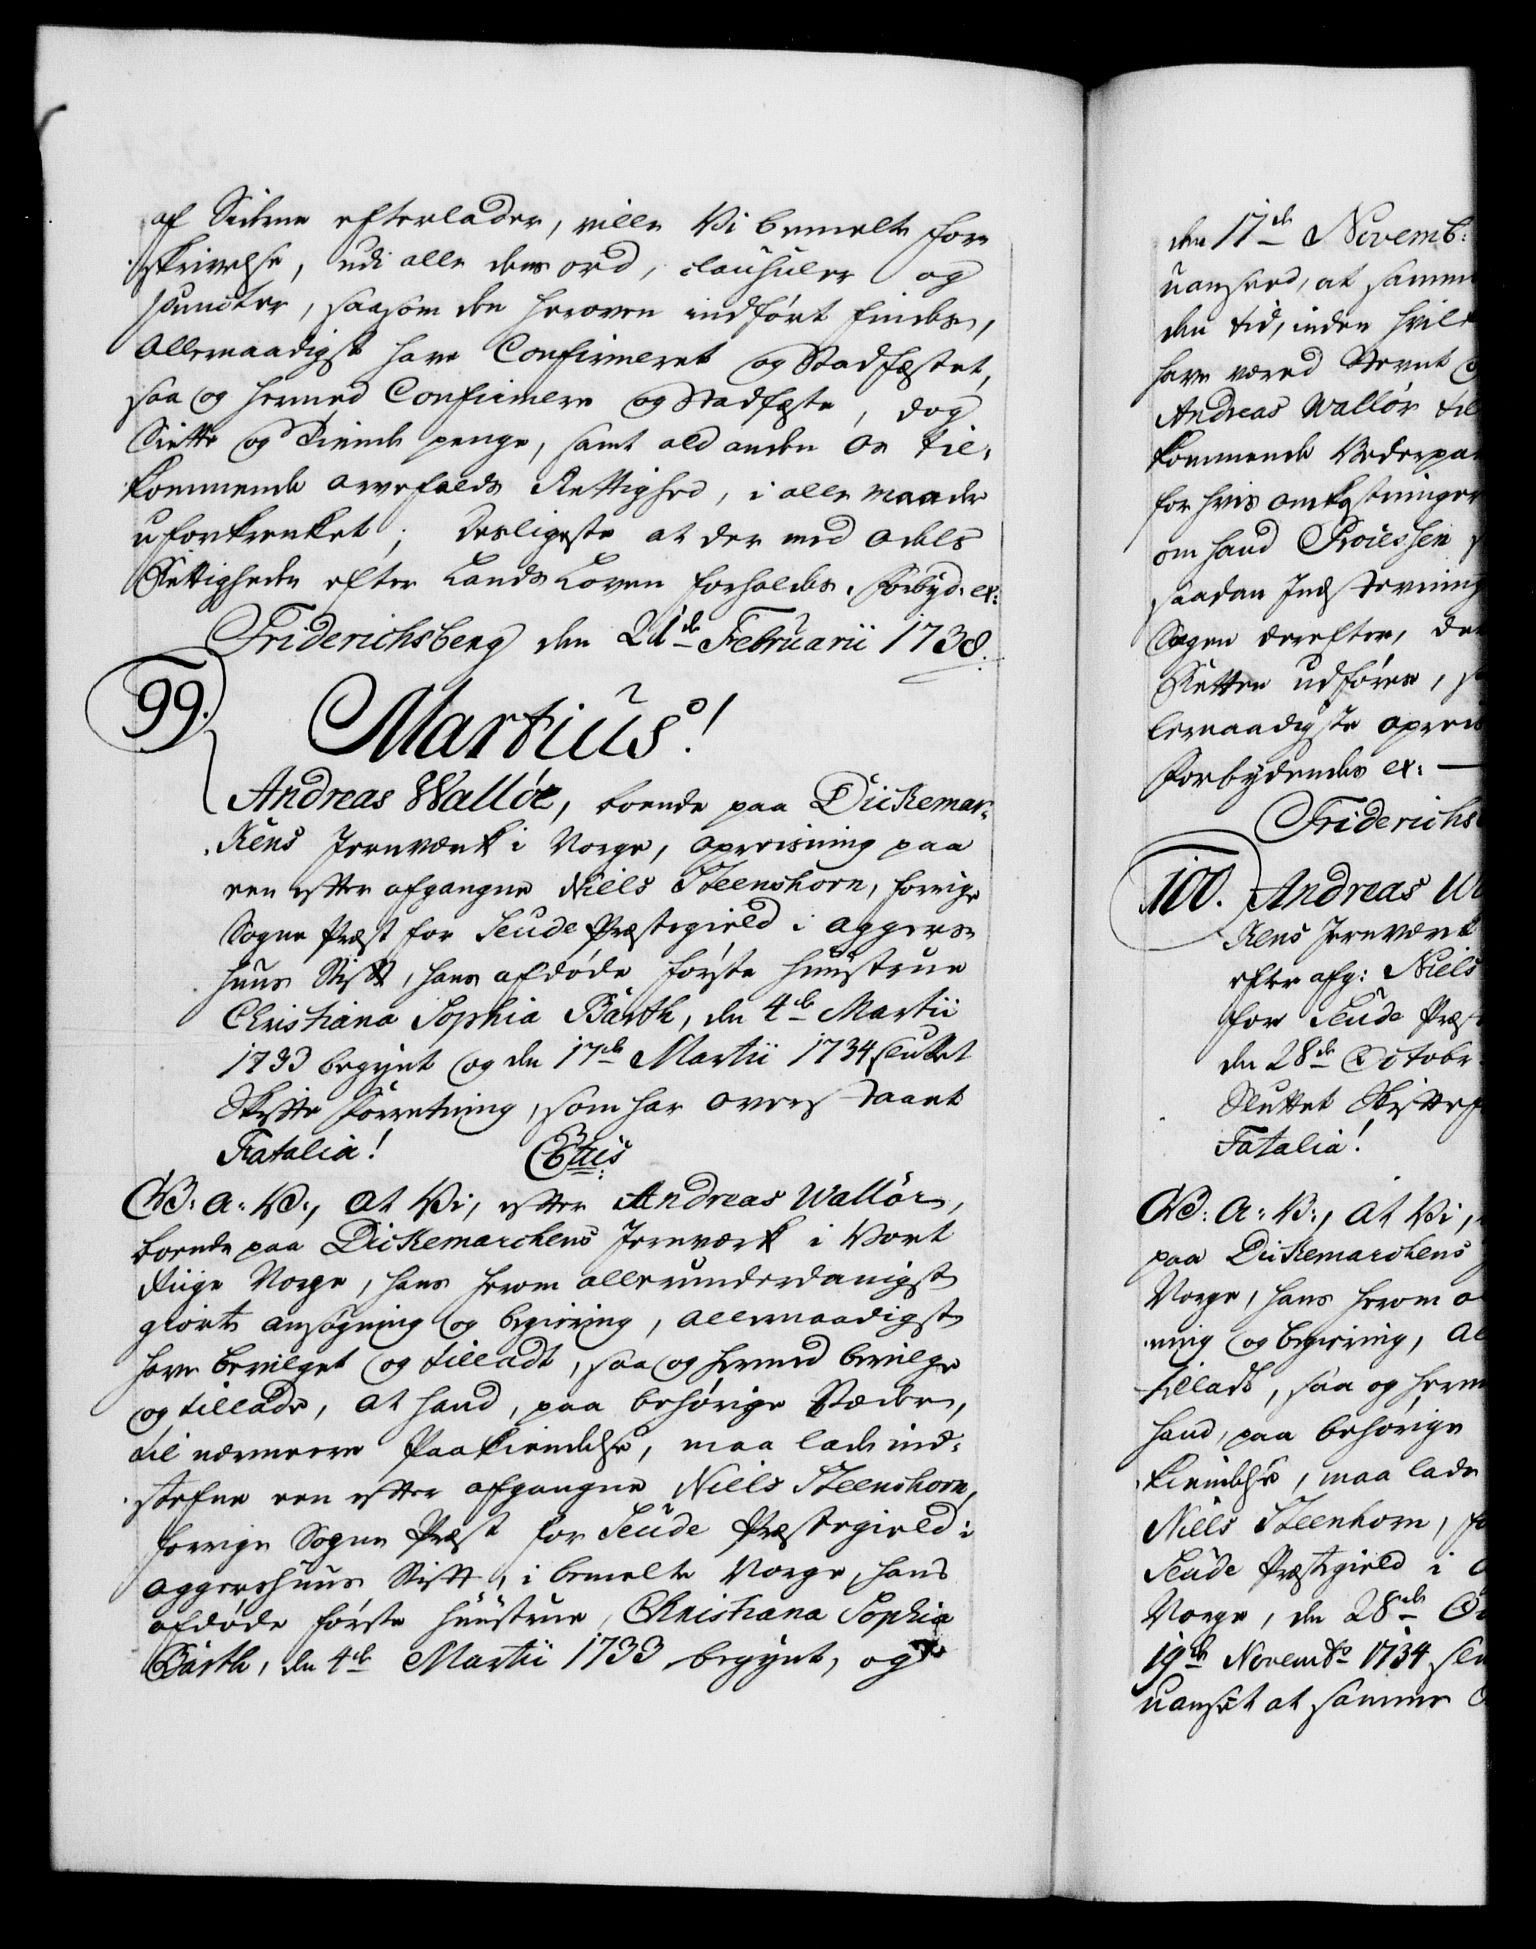 af Sidene efterlader, ville Vi bemelte for
skrivelse, udi alle dens ord, clausuler og
puncter, saasom den heroven indført findes,
Allernaadigst have Confirmeret og Stadfæstet,
saa og hermed Confirmere og Stadfæste, dog
Siette og Tiende penge, samt ald anden Os til-
kommende arvefalds Rettighed, i alle maader
uforkrenket; Desligeste at der med Odels
Rettigheden efter Lands Loven forholdes. Forbyd: ex:
Friderichsberg den 21de Februarii 1738.
99.
Martius!
Andreas Wallør, boende paa Dickemar-
kens Jernværk i Norge, opreisning paa
een efter afgangne Niels Steenhorn, forrige
Sogne Præst for Seude Præstegield i Aggers-
huus Stift, hans afdøde første huustrue
Christiana Sophia Barth, den 4de Martii
1733 begynt og den 17de Martii 1734 sluttet
Skifte Forretning, som har oversstaaet
Fatalia!
C6tus
G: A: V:, At Vi, efter Andreas Wallør,
boende paa Dickemarchens Jernværk i Vort
Riige Norge, hans herom allerunderdanigst
giorte ansøgning og begiering, allernaadigst
have bevilget og tilladt, saa og hermed bevilge
og tillade, at hand, paa behørige Stæder,
til nærmere Paakiendelse, maa lade ind-
stefne een efter afgangne Niels Steenhorn,
forrige Sogne Præst for Seude Præstegield i
Aggershuus Stift, i bemelte Norge, hans
afdøde første huustrue, Christiana Sophia
Barth, den 4de Martii 1733 begynt, og
den 17de Novemb:
uanseed, at samm
den tid, inden hvilk
have været stevnt
Andreas Wallør til
kommende Vederpar
for hvis omkostninger
om hand
saadan Indstevning
Sagen derefter, de
Retten udføres, s
lernaadigste opreis
Forbydendes ex:
Friderichs
100.
Andreas W
kens Jernværk
efter afg: Niels
for Seude Præs
den 28de Octobr
sluttet Skiftef
Fatalia!
G: A: V:, At Vi,
paa Dickemarchens
Norge, hans herom a
ning og begiering, al
tilladt, saa og herm
hand, paa behørige
kiendelse, maa lade
Niels Steenhorn, fo
Seude Præstegield i A
Norge, den 28de Oc
19de Novembr 1734 slu
uanset at samme